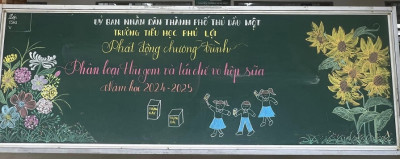 ỦY BAN NHÂN DÂN THÀNH PHỐ THỦ DẦU MỘT
TRƯỜNG TIỂU HỌC PHÚ LỢI
Phát động chương trình
Phân loại thu gom và tái chế vỏ hộp sữa
Năm học 2024-2025